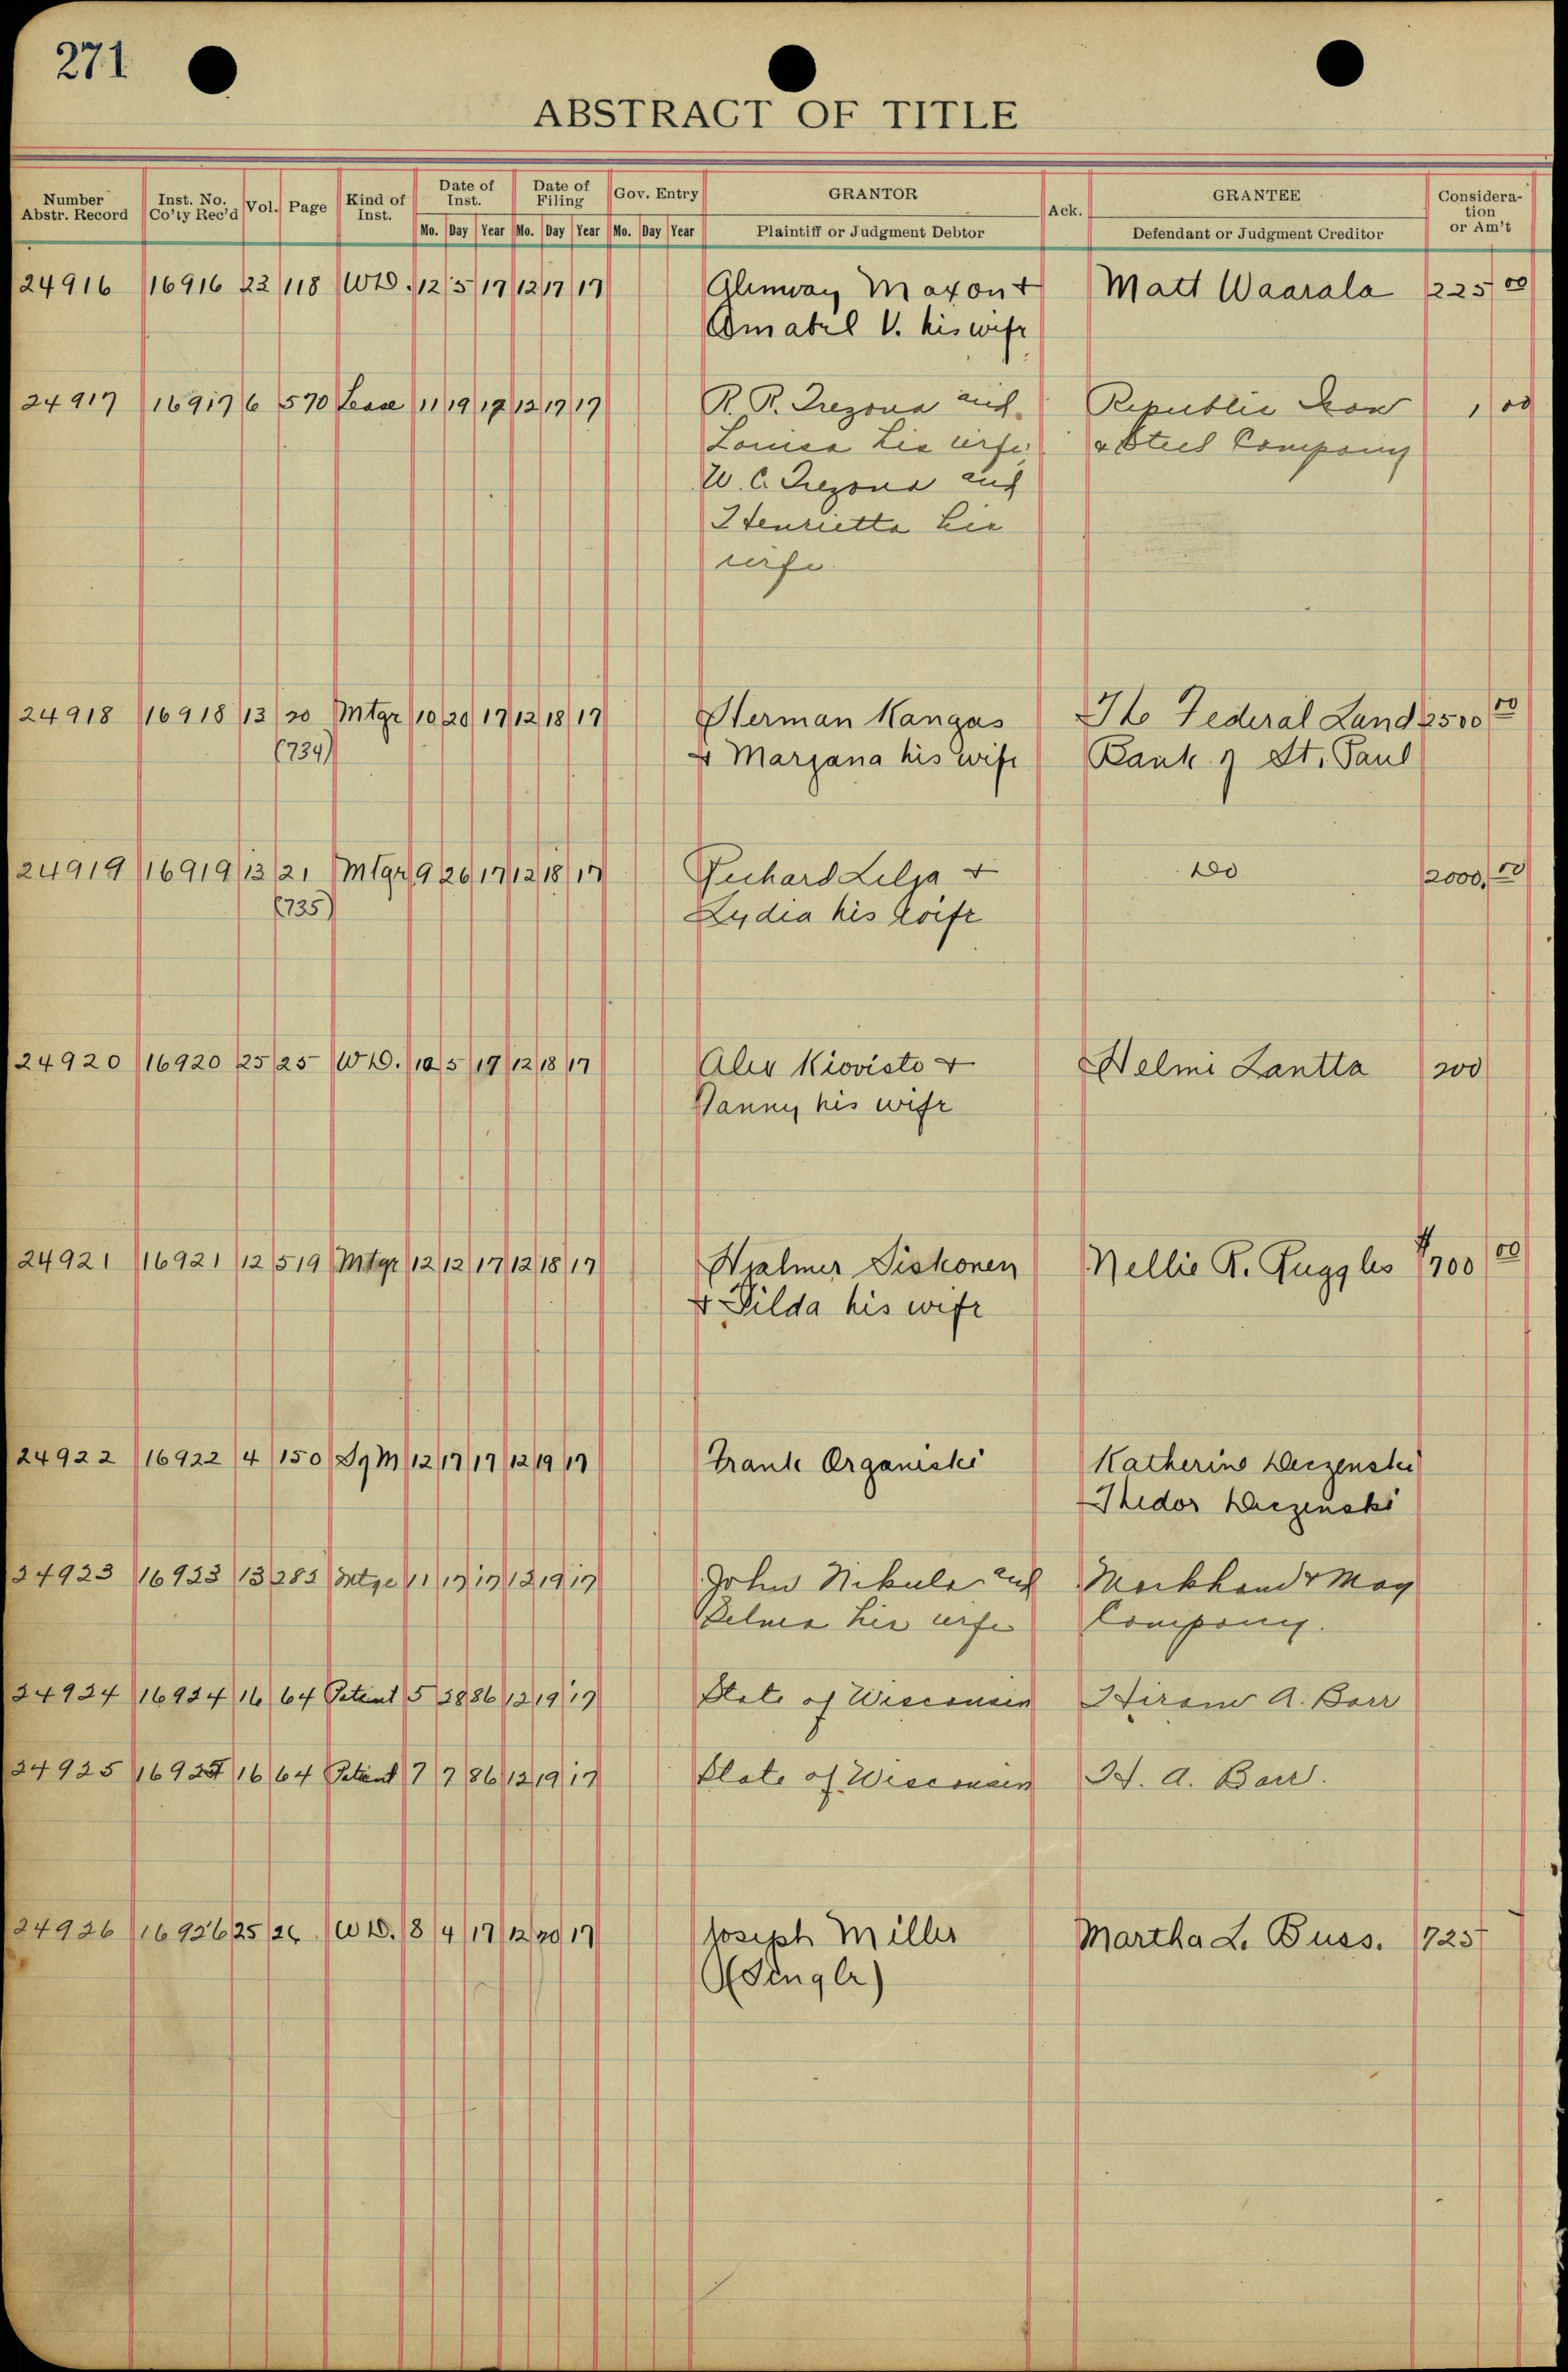 271
ABSTRACT OF TITLE
Number Abstr. Record Inst. No. Co'ty Rec'd Vol. Page Kind of Inst. Date of Inst. Date of Filing Gov. Entry GRANTOR Ack. GRANTEE Considera-tion or Am't
Mo. Day Year Mo. Day Year Mo. Day Year Plaintiff or Judgment Debtor Defendant or Judgment Creditor
24916 16916 22 118 W.D. 12 5 17 12 17 17 Glenway Maxon + Matt Waarala 225 00
Amabel V. his wife
24917 16917 6 570 Lease 11 19 17 12 17 17 R. R. Trezona and Republic Iron 1 00
Louisa his wife, & Steel Company
W. C. Trezona and
Henrietta his
wife
24918 16918 13 20 Mtge 10 20 17 12 18 17 Herman Kangas The Federal Land 2500 00
(734) & Marjana his wife Bank of St. Paul
24919 16919 13 21 Mtge 9 26 17 12 18 17 Richard Lilja + do 2000. 00
(735) Lydia his wife
24920 16920 25 25 W.D. 10 5 17 12 18 17 Alex Kiovisto + Helmi Lantta 200
Fanny his wife
24921 16921 12 519 Mtge 12 12 17 12 18 17 Hjalmer Siskonen Nellie R. Ruggles 700 00
& Hilda his wife
24922 16922 4 150 S of M 12 17 17 12 19 17 Frank Organiski Katherine
Thedor
24923 16923 13 282 Mtge 11 17 17 12 19 17 John Nikula and Markham & May
his wife Company.
24924 16924 16 64 Patent 5 28 86 12 19 17 State of Wisconsin Hiram A. Barr
24925 16925 16 64 Patent 7 7 86 12 19 17 State of Wisconsin H. A. Barr.
24926 16926 25 26 W.D. 8 4 17 12 20 17 Joseph Miller Martha L. Buss. 725
(Single)